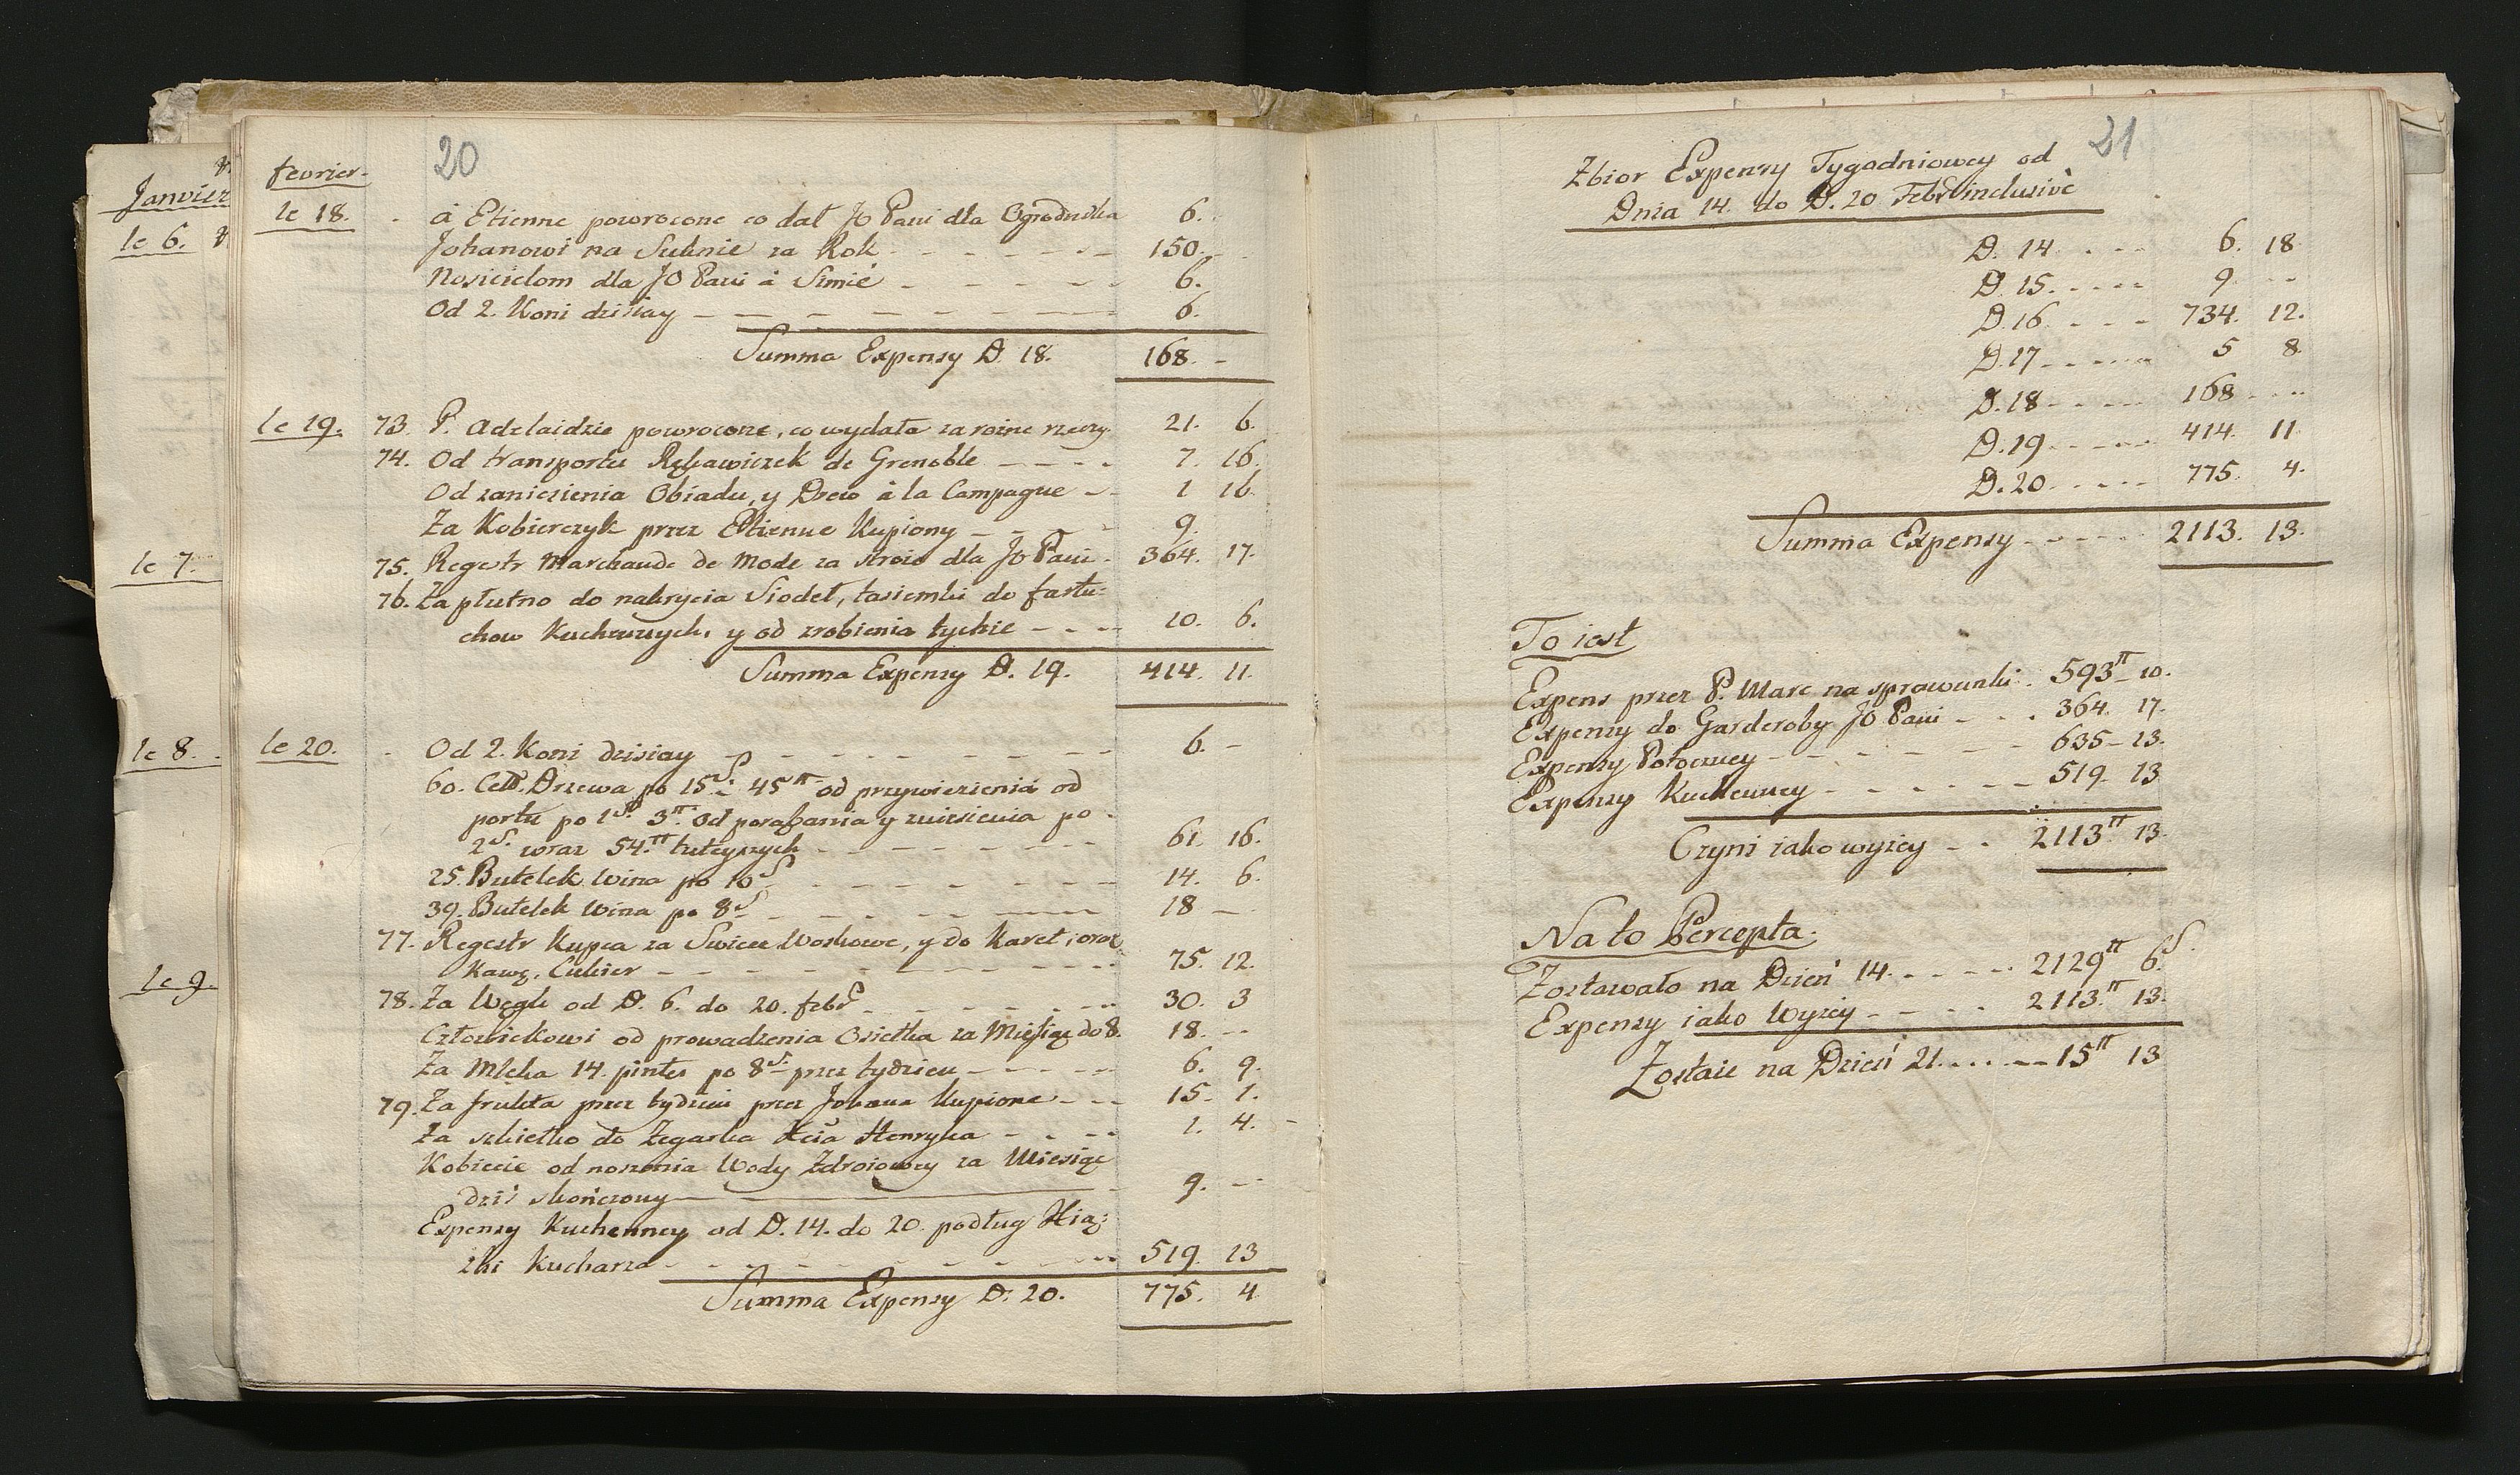 Janvier
le 6.
le 7.
le 8.
le 9.
20
fevrier.
le 18. à Etienne powrocone co dał JO Pani dla Ogrodnika 6.
Johanowi na Suknie za Rok 150.
Nosicielom dla JO Pani à Simié 6.
Od 2. Koni dzisiay 6.
Summa Expensy D. 18. 168. -
le 19. 73. P. Adelaidzie powrocone, co wydała za rożne rzeczy. 21. 6.
74. Od transportu Rękawiczek de Grenoble 7. 16.
Od zaniezienia Obiadu, y Drew à la Campagne 1 16.
Za Kobierczyk przez Etienne Kupiony 9.
75. Regestr Marchande de Mode za stroie dla JO Pani 364. 17.
76. Za płutno do nakrycia Siodeł, tasiemki do fartu:
chow Kuchennych, y od zrobienia tychże 10. 6.
Summa Expensy D. 19. 414. 11.
le 20. Od 2. Koni dzisiay 6. -
60. Cett. Drzewa po 15 s. 45 tt od przywiezienia od
portu po 1 s. 3 tt. Od porąbania y zniesienia po
2 s. wraz 54. tt tuteyszych 61. 16.
25. Butelek Wina po 10 s. 14. 6.
39. Butelek Wina po 8 s. 18 -
77. Regestr Kupca za Swiece Woskowe, y do Karet, oraz
Kawę, Cukier 75. 12.
78. Za Węgle od D. 6. do 20. febr. 30. 3
Człowiekowi od prowadzenia Osiełka za Miesiąc do 8. 18. --
Za Mleka 14 pintes po 8 s. przez tydzien 6. 9.
79. Za frukta przez tydzien przez Johana Kupione 15. 1.
Za szkiełko do Zegarka Xcia Henryka 1. 4.
Kobiecie od noszenia Wody Zdroiowey za Miesiąc
dziś skończony 9. --
Expensy Kuchenney od D. 14. do 20. podług Xią:
żki Kucharza 519. 13
Summa Expensy D. 20. 775. 4
21
Zbior Expensy Tygodniowey od
Dnia 14. do D. 20 Febr. inclusivè
D. 14 6. 18
D. 15. 9 --
D. 16 734. 12.
D. 17 5 8.
D. 18 168
D. 19 414. 11
D. 20 775. 4.
Summa Expensy 2113. 13.
To iest
Expens przez P. Marc na sprawunki 593 tt 10.
Expensy do Garderoby JO Pani 364. 17.
Expensy Potoczney 635 - 13.
Expensy Kuchenney 519. 13
Czyni iako wyżey 2113 tt 13.
Na to Percepta.
Zostawało na Dzień 14. 2129 tt 6 s.
Expensy iako Wyżey 2113. tt 13.
Zostaie na Dzień 21. 15 tt 13